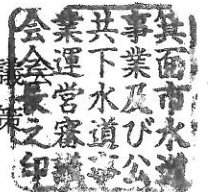 箕面市水道
事業及び公
共下水道事
業運営審議
会会長之印